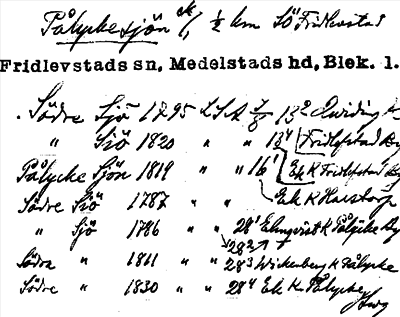 Pålyckesjön ek/1 ½ km SÖ Fridlevstad
Fridlevstads sn, Medelstads hd, Blek. l.
Södre Sjö 1795 LSA 7/8 13² Qwiding K
" Sjö 1820 " " 13⁴ Fridlefstad By
Pålycke Sjön 1819 " " 16¹ Ek K Fridlefstad By
Södre Siö 1787 " " Ek K Harstorp
" Sjö 1786 " " 28¹ Elmqvist K Pålycke By
28²
Södra " 1811 " " 28³ Wickenberg K Pålycke
Södre " 1830 " " 28⁴ Ek K Pålycke